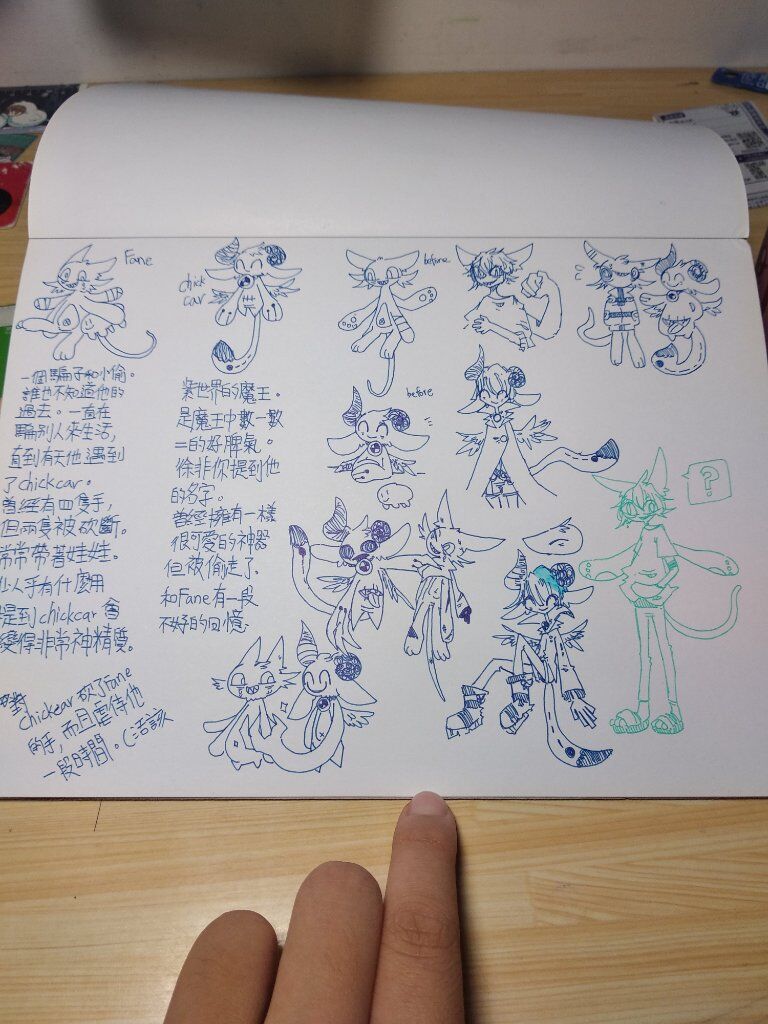 Fane
一個騙子和小偷。
誰也不知道他的
過去。一直在
騙別人來生活,
直到有天他遇到
了chickcar。
曾經有四隻手,
但兩隻被砍斷。
常常帶著娃娃。
似乎有什麼用
提到chickcar會
變得非常神精質。
chickcar砍了Fane
的手,而且虐待他
一段時間。(活該
chick
car
紫世界的魔王。
是魔王中數一數
二的好脾氣。
除非你提到他
的名字。
曾經擁有一樣
很可愛的神器
但被偷走了。
和Fane有一段
不好的回憶。
before
before
?